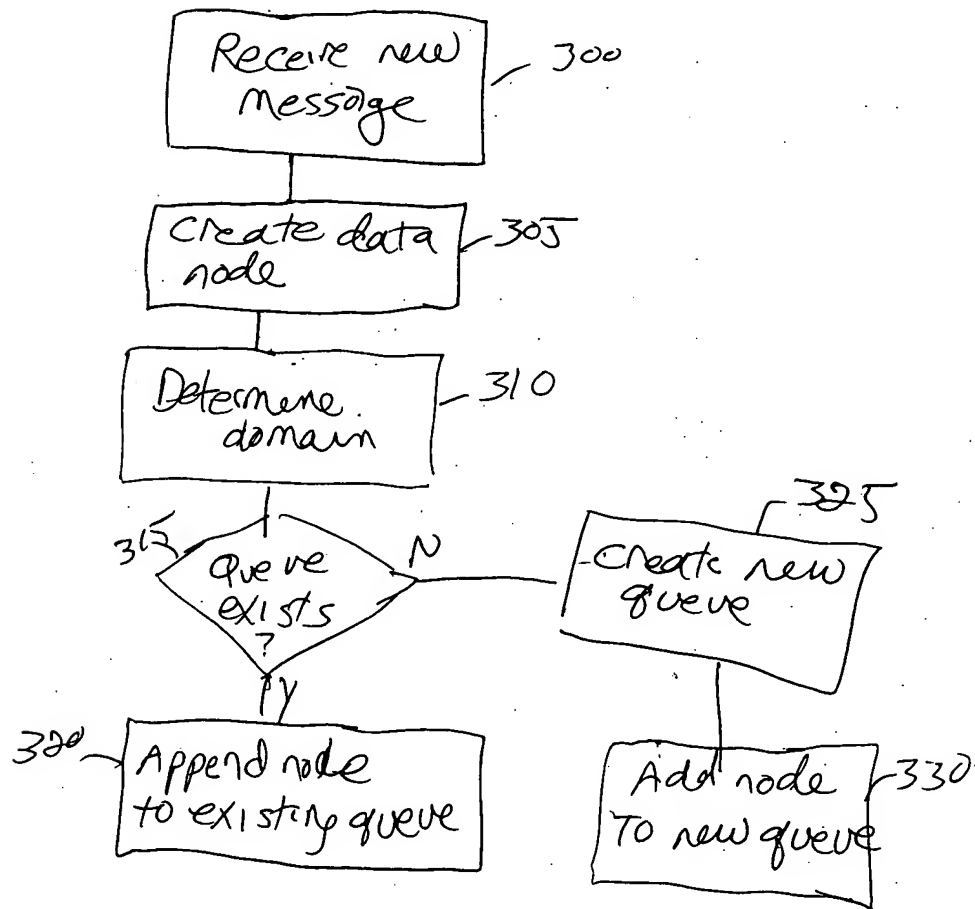 Receive new
message
300
Create data
node
305
Determine
domain
310
315
Queue
exists
?
N
Y
325
Create new
queue
320
Append node
to existing queue
Add node
To new queue
330